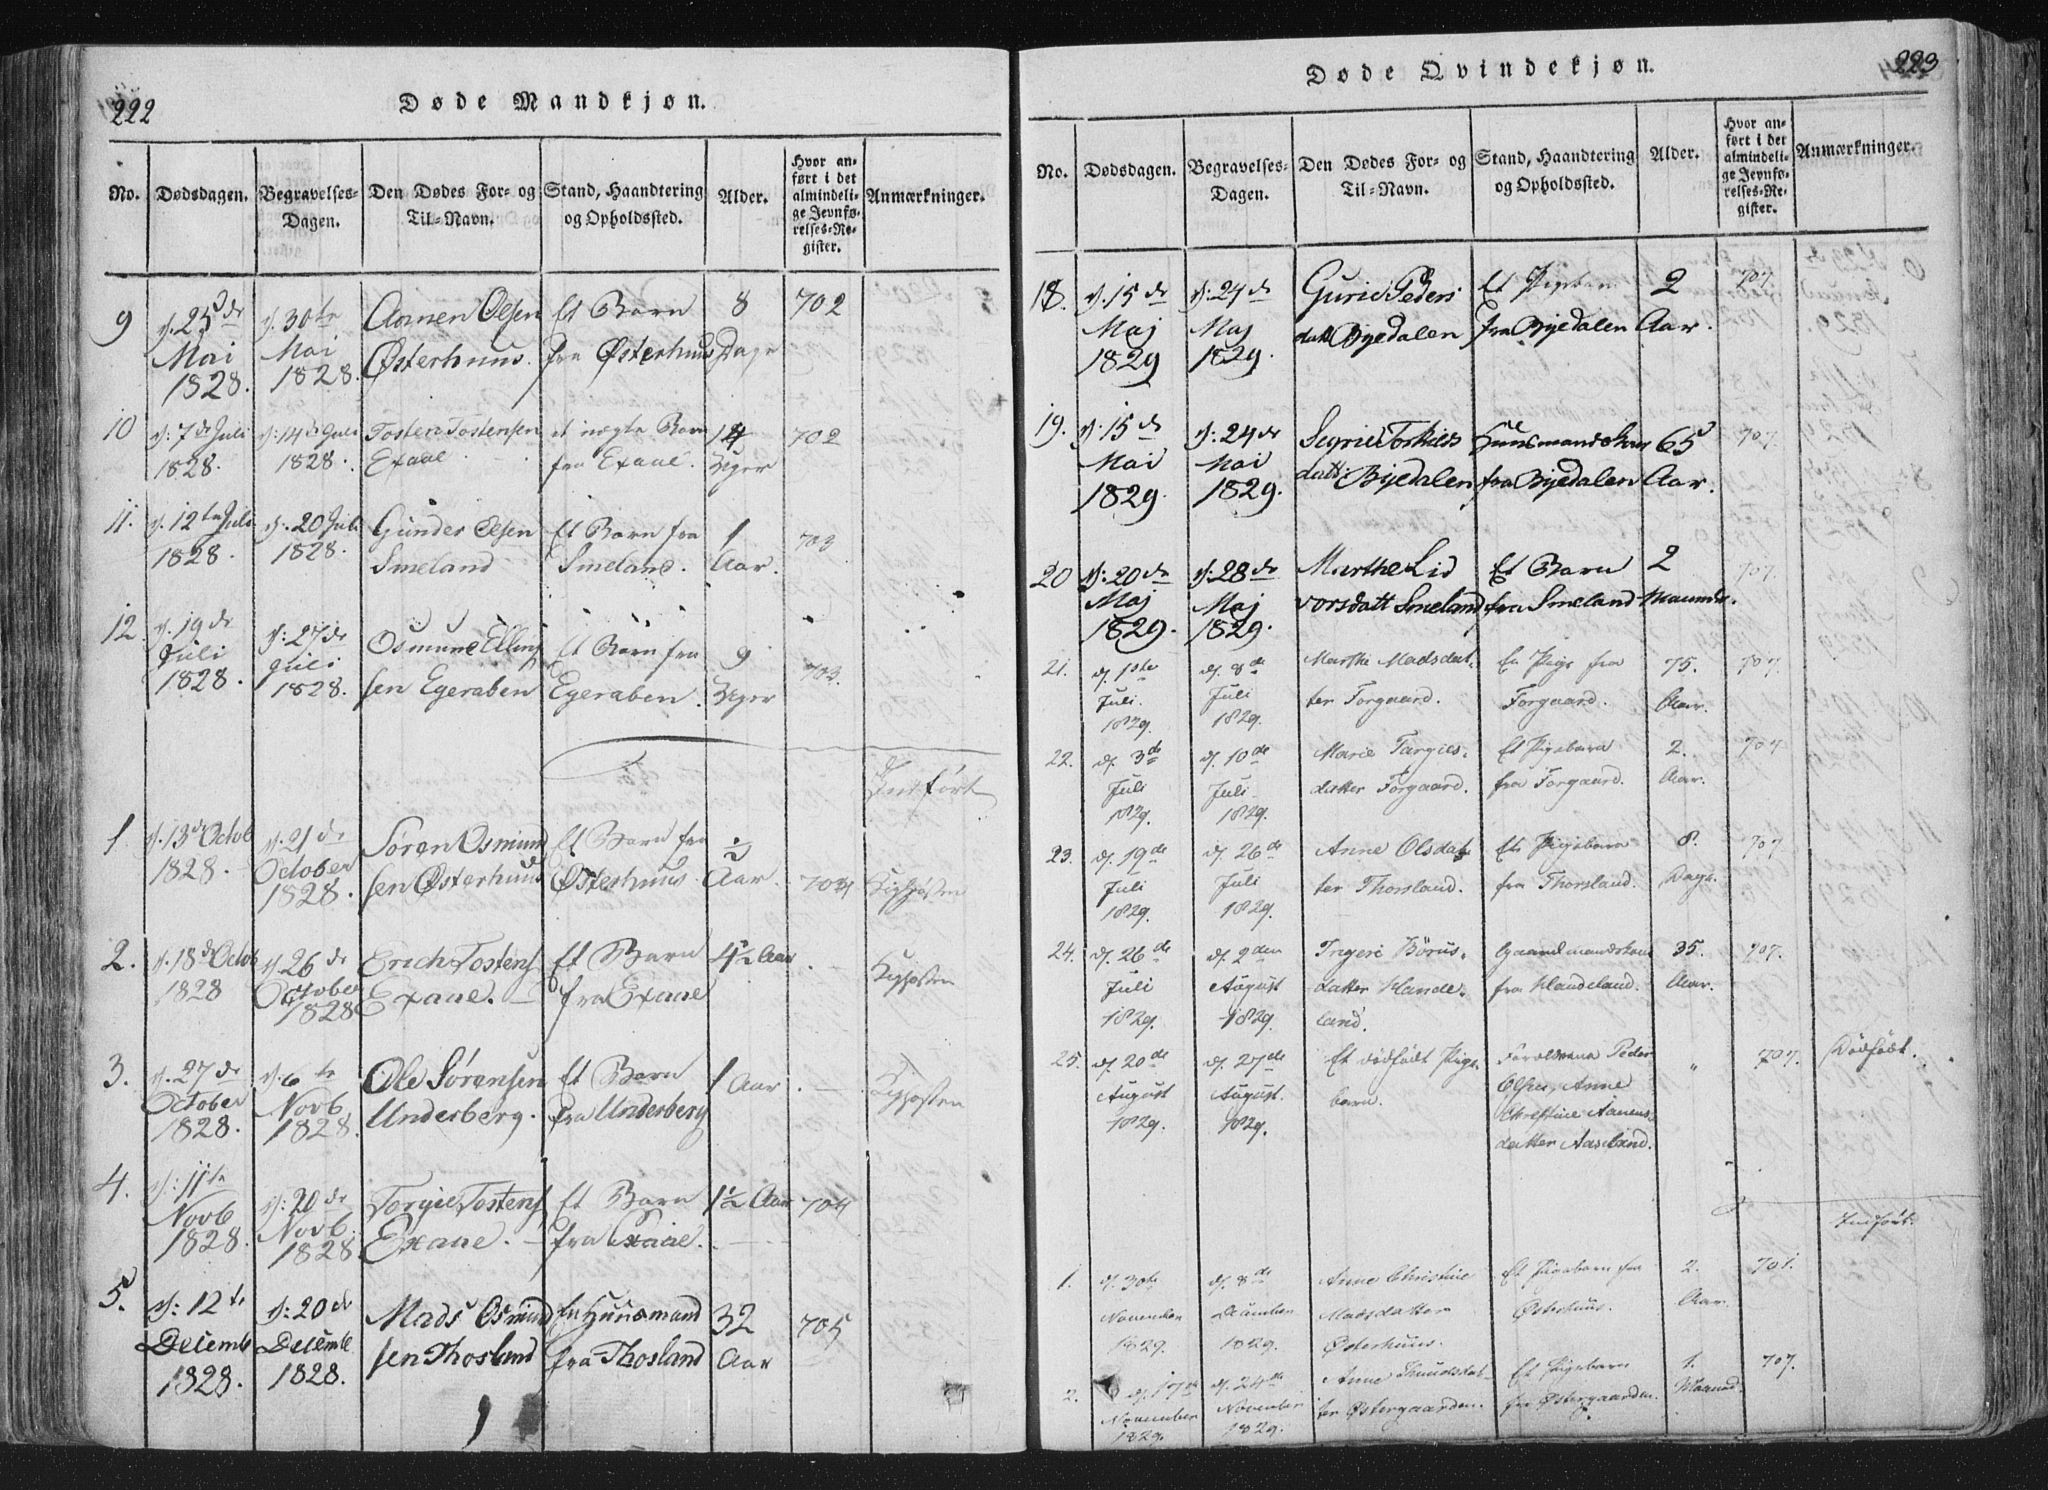 222
Døde Mandkjøn.
No. Dødsdagen. Begravelses-Dagen. Den Dødes For- og Til-Navn. Stand, Haandtering og Opholdssted. Alder. Hvor anført i det almindelige Jevnførelses-Register. Anmærkninger.
9 d: 25de d: 30te Aanen Olsen Et Barn 8 702
Mai Mai Østerhuus. fra Østerhuus Dage
1828. 1828.
10 d: 7de Juli d: 14de Juli Tosten Tostensen et Barn 14 702
1828. 1828. Exaae fra Exaae. Uger
11. d. 12te Juli d. 20 Juli Gunder Olsen Et Barn fra 1 703
1828. 1828. Smeland Smeland. Aar.
12. d. 19de d: 27de Osmund Elling Et Barn fra 9 703.
Juli Juli sen Egeraben Egeraben. Uger
1828. 1828.
Indført
1. d. 13de Octob d. 21de Søren Osmund Et Barn fra ½
1828. October sen Østerhuus Østerhuus. Aar. 704 Kighosten
1828.
2. d. 18de Octob d. 26de Erich Tostens Et Barn 4½ Aar
1828 October Exaae. fra Exaae Kighosten
1828
3. d. 27de d. 6te Ole Sørensen Et Barn 1 Aar
October Novb Underberg. fra Underberg Kighosten
1828. 1828.
4. d: 11te d: 20de Torgie Tostens Et Barn 1½ Aar 704
Novb Novb Exaae. fra Exaae.
1828. 1828
5. d: 12te d: 20de Mads Osmund En Huusmand 32 705
Decemb Decemb sen Thosland fra Thosland Aar
1828. 1828.
223
Døde Qvindekjøn.
No. Dødsdagen. Begravelses-Dagen. Den Dødes For- og Til-Navn. Stand, Haandtering og Opholdssted. Alder. Hvor anført i det almindelige Jevnførelses-Register. Anmærkninger.
18. d. 15de d. 24de Gurie Peders Et Pigebarn 2 707.
Maj Maj datt Byedalen fra Byedalen Aar.
1829 1829.
19. d: 15de d: 24de Segrie Torkilds Huusmandskone 65 707.
Mai Mai datt: Byedalen fra Byedalen Aar.
1829. 1829.
20 d: 20de d: 28de Marthe Lid Et Barn 2 707.
Maj Maj vorsdatt Smeland fra Smeland Maaneder.
1829. 1829.
21. d. 1ste d. 8de Marthe Madsdat- En Pige fra 75. 707.
Juli. Juli ter Forgaard. Forgaard. Aar.
1829. 1829.
22. d. 3de d. 10de Marie Targies- Et Pigebarn 2. 707
Juli Juli datter Forgaard. fra Forgaard. Aar.
1829. 1829.
23. d. 19de d. 26de Anne Olsdat- Et Pigebarn 8. 707
Juli Juli ter Thorsland. fra Thorsland. Dage.
1829. 1829.
24. d. 26de d. 2den Ingeri Børus- Gaardmandskone 35. 707.
Juli August datter Hande- fra Handeland. Aar.
1829. 1829. land.
25. d. 20de d. 27de Et dødfødt Pige- Forældrene Peder " 707. Dødfødt.
August August. barn. Olsen, Anne
1829. 1829. Christine Aanens-
datter Aaseland.
Indført.
1. d. 30te d. 8de Anne Christine Et Pigebarn fra 2. 701.
November December Madsdatter Østerhuus. Aar.
1829. 1829. Østerhuus.
2. d. 17de d. 24de Anne Knudsdat- Et Pigebarn 1. 707.
November November ter Østergaarden. fra Østergaarden. Maaned.
1829. 1829.